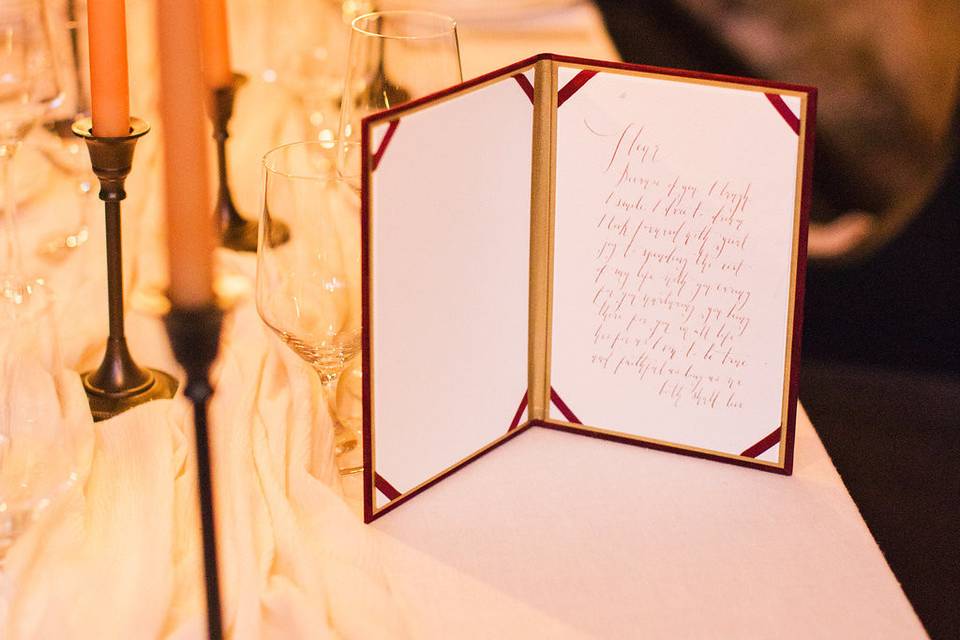 Because of you, I laugh
I smile, I dare to dream
I look forward with great
joy to spending the rest
of my life with you caring
for you, nurturing you, being
there for you in all life
has for us, I vow to be true
and faithful as long as we
both shall live